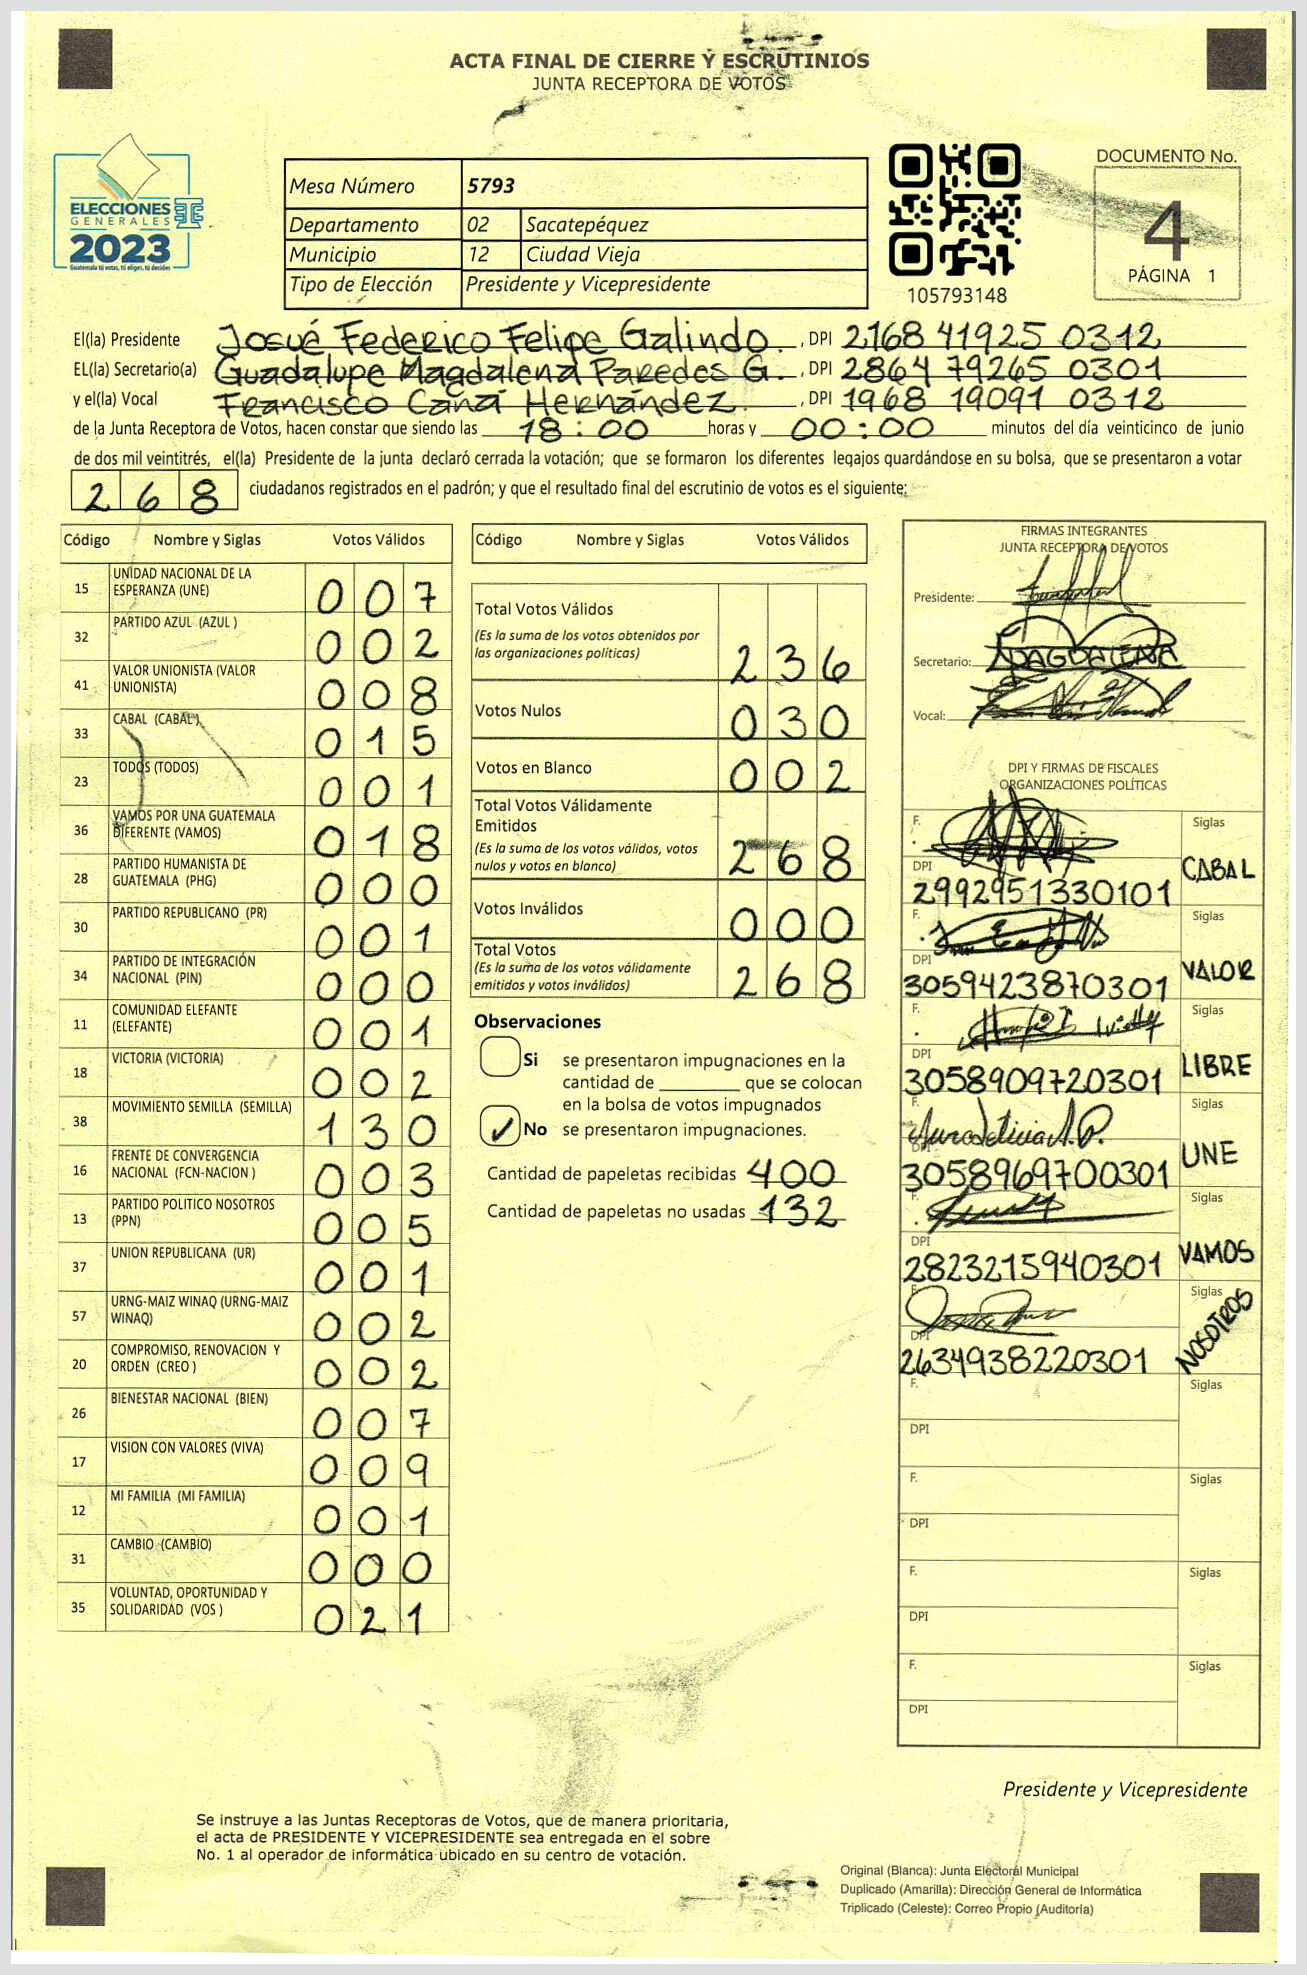 ACTA FINAL DE CIERRE Y ESCRUTINIOS
JUNTA RECEPTORA DE VOTOS
ELECCIONES
GENERALES
2023
Guatemala tú votas, tú eliges, tú decides
Mesa Número 5793
Departamento 02 Sacatepéquez
Municipio 12 Ciudad Vieja
Tipo de Elección Presidente y Vicepresidente
105793148
DOCUMENTO No.
4
PÁGINA 1
El(la) Presidente Josué Federico Felipe Galindo. , DPI 2168 41925 0312
EL(la) Secretario(a) Guadalupe Magdalena Paredes G. , DPI 2864 79265 0301
y el(la) Vocal Francisco Canzi Hernández. , DPI 1968 19091 0312
de la Junta Receptora de Votos, hacen constar que siendo las 18:00 horas y 00:00 minutos del día veinticinco de junio
de dos mil veintitrés, el(la) Presidente de la junta declaró cerrada la votación; que se formaron los diferentes legajos guardándose en su bolsa, que se presentaron a votar
268 ciudadanos registrados en el padrón; y que el resultado final del escrutinio de votos es el siguiente:
Código Nombre y Siglas Votos Válidos
15 UNIDAD NACIONAL DE LA ESPERANZA (UNE) 007
32 PARTIDO AZUL (AZUL ) 002
41 VALOR UNIONISTA (VALOR UNIONISTA) 008
33 CABAL (CABAL ) 015
23 TODOS (TODOS) 001
36 VAMOS POR UNA GUATEMALA DIFERENTE (VAMOS) 018
28 PARTIDO HUMANISTA DE GUATEMALA (PHG) 000
30 PARTIDO REPUBLICANO (PR) 001
34 PARTIDO DE INTEGRACIÓN NACIONAL (PIN) 000
11 COMUNIDAD ELEFANTE (ELEFANTE) 001
18 VICTORIA (VICTORIA) 002
38 MOVIMIENTO SEMILLA (SEMILLA) 130
16 FRENTE DE CONVERGENCIA NACIONAL (FCN-NACION ) 003
13 PARTIDO POLITICO NOSOTROS (PPN) 005
37 UNION REPUBLICANA (UR) 001
57 URNG-MAIZ WINAQ (URNG-MAIZ WINAQ) 002
20 COMPROMISO, RENOVACION Y ORDEN (CREO ) 002
26 BIENESTAR NACIONAL (BIEN) 007
17 VISION CON VALORES (VIVA) 009
12 MI FAMILIA (MI FAMILIA) 001
31 CAMBIO (CAMBIO) 000
35 VOLUNTAD, OPORTUNIDAD Y SOLIDARIDAD (VOS ) 021
Código Nombre y Siglas Votos Válidos
Total Votos Válidos
(Es la suma de los votos obtenidos por
las organizaciones políticas) 236
Votos Nulos 030
Votos en Blanco 002
Total Votos Válidamente
Emitidos
(Es la suma de los votos válidos, votos
nulos y votos en blanco) 268
Votos Inválidos 000
Total Votos
(Es la suma de los votos válidamente
emitidos y votos inválidos) 268
Observaciones
Si se presentaron impugnaciones en la
cantidad de ________ que se colocan
en la bolsa de votos impugnados
✓ No se presentaron impugnaciones.
Cantidad de papeletas recibidas 400
Cantidad de papeletas no usadas 132
FIRMAS INTEGRANTES
JUNTA RECEPTORA DE VOTOS
Presidente:
Secretario: MAGDALENA
Vocal:
DPI Y FIRMAS DE FISCALES
ORGANIZACIONES POLÍTICAS
F. Siglas
DPI 2992951330101 CABAL
F. Siglas
DPI 3059423870301 VALOR
F. Siglas
DPI 3058909720301 LIBRE
F. Siglas
DPI 3058969700301 UNE
F. Siglas
DPI 2823215940301 VAMOS
F. Siglas
DPI 2634938220301 NOSOTROS
F. Siglas
DPI
F. Siglas
DPI
F. Siglas
DPI
F. Siglas
DPI
Presidente y Vicepresidente
Se instruye a las Juntas Receptoras de Votos, que de manera prioritaria,
el acta de PRESIDENTE Y VICEPRESIDENTE sea entregada en el sobre
No. 1 al operador de informática ubicado en su centro de votación.
Original (Blanca): Junta Electoral Municipal
Duplicado (Amarilla): Dirección General de Informática
Triplicado (Celeste): Correo Propio (Auditoría)